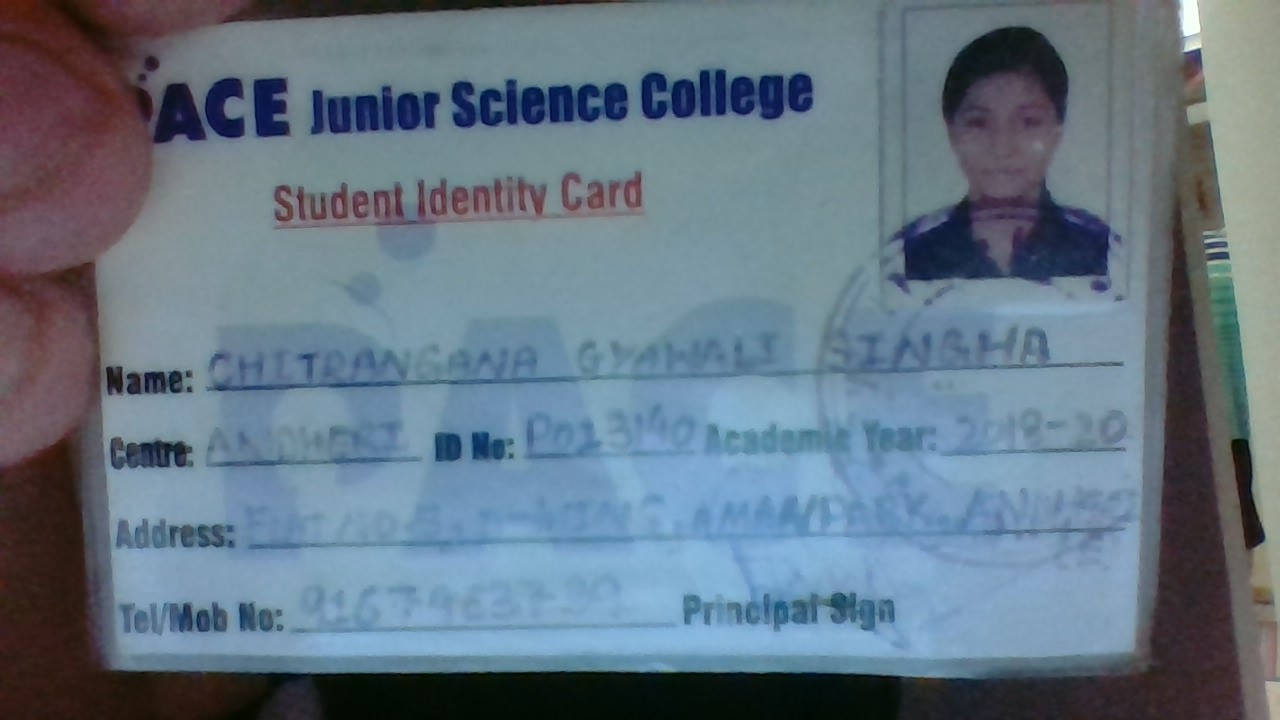 PACE Junior Science College
Student Identity Card
Name: CHITRANGANA GYAWALI SINGHA
Centre: ANDHERI ID No: P023140 Academic Year: 2018-20
Address: AMAN PARK,
Tel/Mob No: Principal Sign